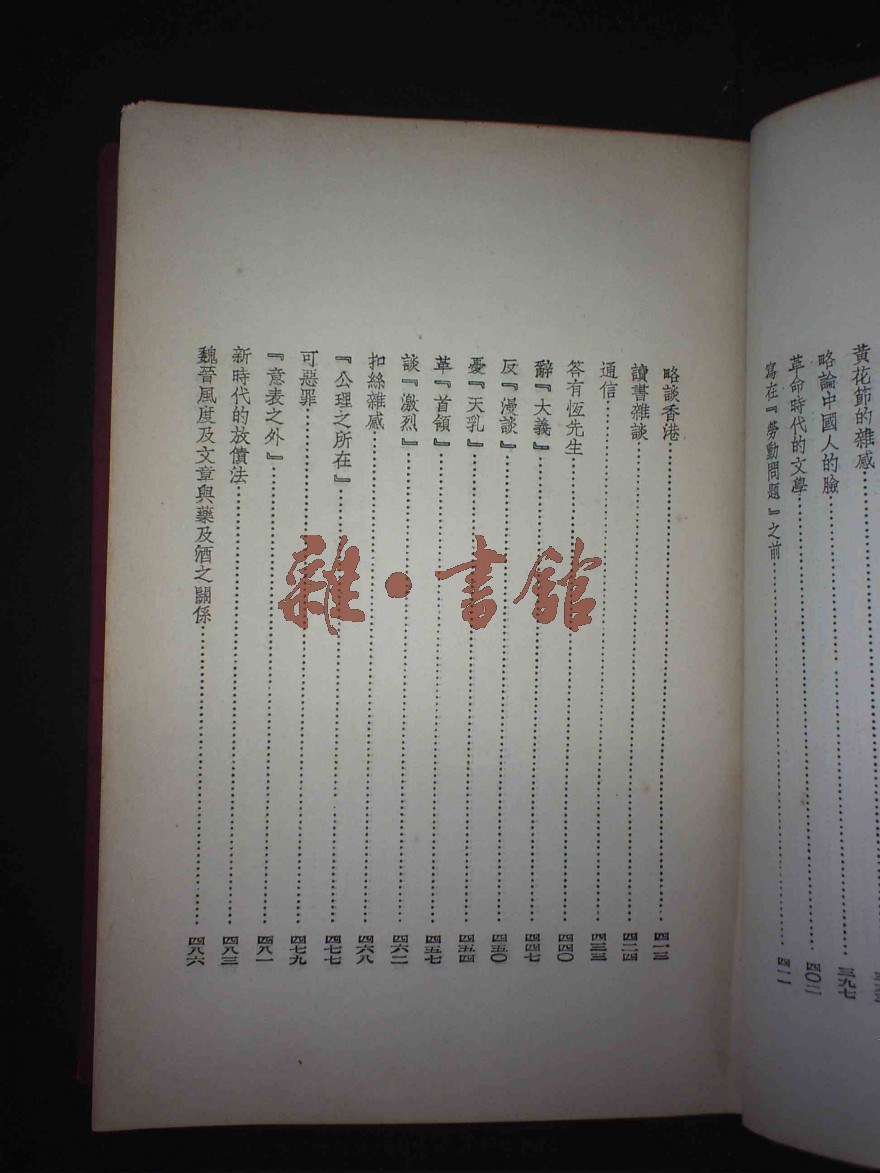 黃花節的雜感
略論中國人的臉……三九七
革命時代的文學……四〇二
寫在『勞動問題』之前……四一一
略談香港……四一三
讀書雜談……四二四
通信……四三三
答有恆先生……四四〇
辭『大義』……四四七
反『漫談』……四五〇
憂『天乳』……四五四
革『首領』……四五七
談『激烈』……四六二
扣絲雜感……四六八
『公理之所在』……四七七
可惡罪……四七九
『意表之外』……四八一
新時代的放債法……四八三
魏晉風度及文章與藥及酒之關係……四八六
雜·書館